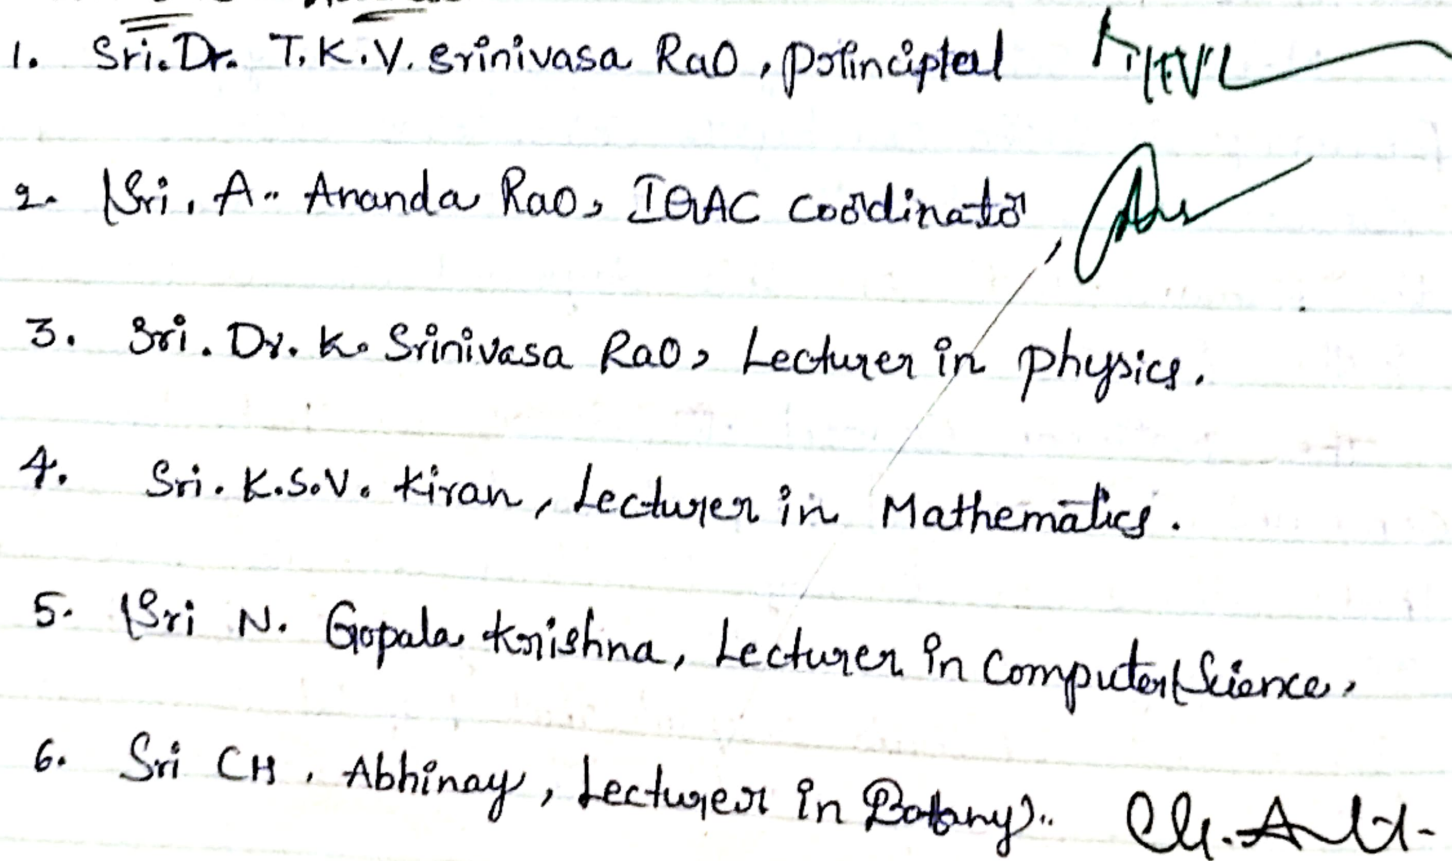 1. Sri. Dr. T. K. V. Srinivasa Rao, Principal
2. Sri. A. Ananda Rao, IQAC Coordinator
3. Sri. Dr. K. Srinivasa Rao, Lecturer in Physics.
4. Sri. K.S.V. Kiran, Lecturer in Mathematics.
5. Sri N. Gopala Krishna, Lecturer in Computer Science,
6. Sri CH. Abhinay, Lecturer in Botany.